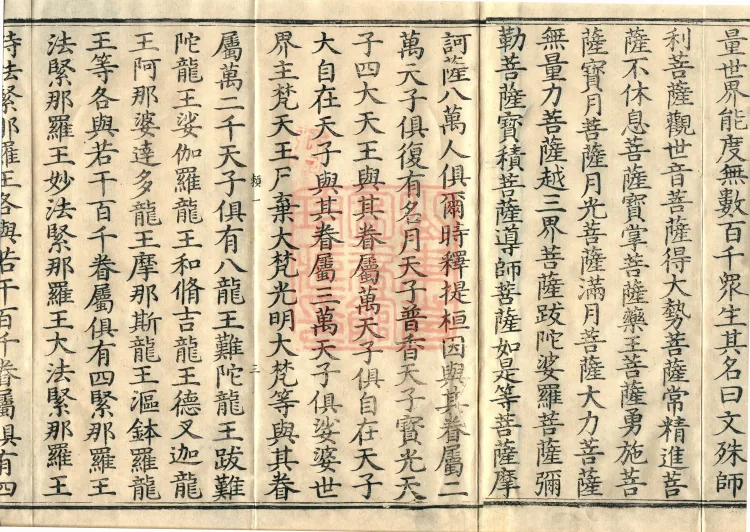 量世界能度無數百千衆生其名曰文殊師
利菩薩觀世音菩薩得大勢菩薩常精進菩
薩不休息菩薩寶掌菩薩藥王菩薩勇施菩
薩寶月菩薩月光菩薩滿月菩薩大力菩薩
無量力菩薩越三界菩薩跋陀婆羅菩薩彌
勒菩薩寶積菩薩導師菩薩如是等菩薩摩
訶薩八萬人俱爾時釋提桓因與其眷屬二
萬天子俱復有名月天子普香天子寶光天
子四大天王與其眷屬萬天子俱自在天子
大自在天子與其眷屬三萬天子俱娑婆世
界主梵天王尸棄大梵光明大梵等與其眷
三
屬萬二千天子俱有八龍王難陀龍王跋難
陀龍王娑伽羅龍王和脩吉龍王德叉迦龍
王阿那婆達多龍王摩那斯龍王漚鉢羅龍
王等各與若干百千眷屬俱有四緊那羅王
法緊那羅王妙法緊那羅王大法緊那羅王
持法緊那羅王各與若干百千眷屬俱有四